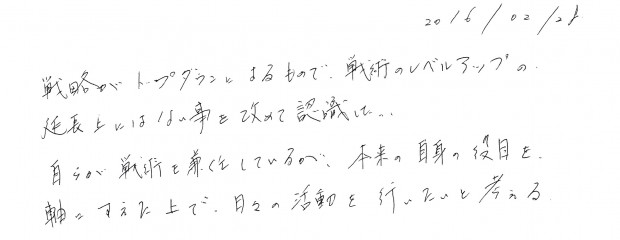 2016/02/21
戦略がトップダウンによるもので、戦術のレベルアップの
延長上にはない事を改めて認識した。
自らが戦術を兼任しているが、本来の自身の役目を
軸にすえた上で、日々の活動を行いたいと考える